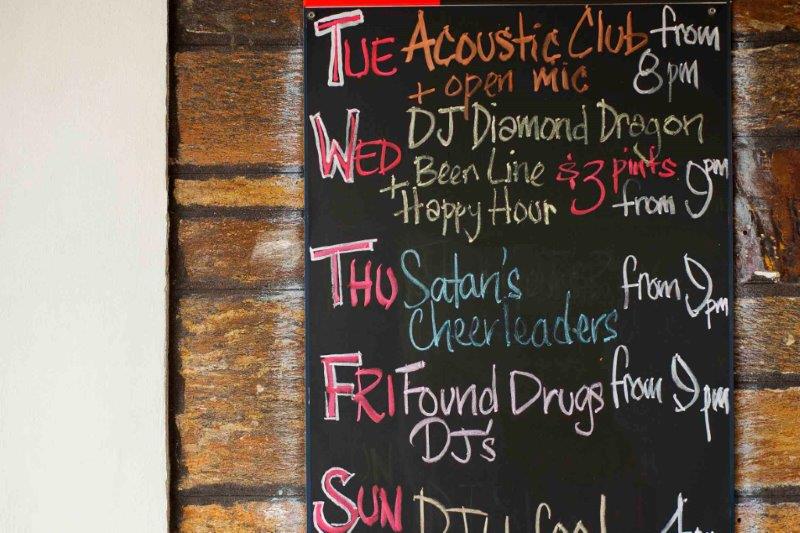 TUE Acoustic Club from
+ open mic 8pm
WED DJ Diamond Dragon
+ Beer Line $3 pints
Happy Hour from 9pm
THU Satan's from 9pm
Cheerleaders
FRI Found Drugs from 9pm
DJ's
SUN